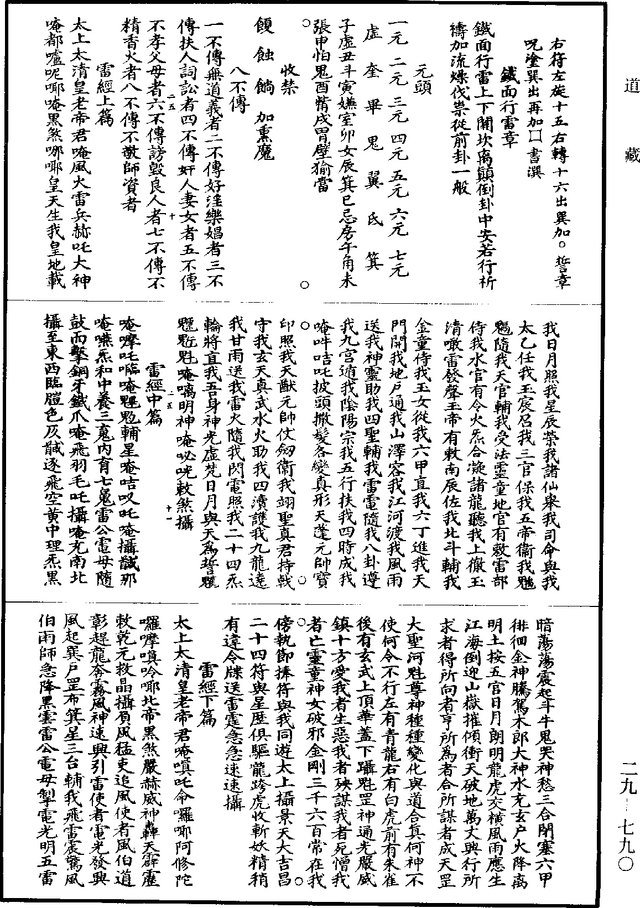 道藏
右符左旋十五右轉十六出巽加○誓章
呪塗巽出再加囗書潠
鐵面行雷章
鐵面行雷上下關坎离顛倒卦中安若行祈
禱加流爍伐祟從前卦一般
元頭
一元 二元 三元 四元 五元 六元 七元
虛 奎 畢 鬼 翼 氐 箕
子虛丑斗寅嫵室卯女辰箕巳忌房午角未
張申怕鬼酉情戌胃壁貐當
收禁
餿 蝕 餉 加熏魔
八不傳
一不傳無道義者二不傳好淫樂娼者三不
傳扶人詞訟者四不傳奸人妻女者五不傳
不孝父母者六不傳謗毀良人者七不傳不
精香火者八不傳不敬師資者
雷經上篇
太上太清皇老帝君唵風火雷兵赫吒大神
唵都嚧呢唧唵黑煞哪唧皇天生我皇地載
我日月照我星辰榮我諸仙舉我司命與我
太乙任我玉宸召我三官保我五帝衛我魁
隨我天官輔我受法靈童地官有敷雷部
侍我水官有令火炁合凝諸龍聽我上徹玉
清噉雷發聲玉帝有敕南辰佐我北斗輔我
金童侍我玉女從我六甲直我六丁進我天
門開我地戶通我山澤容我江河渡我風雨
送我神靈助我四聖輔我雷電隨我八卦遵
我九宮遁我陰陽宗我五行扶我四時成我
唵吽咭吒披頭撒髮各變真形天蓬元帥寶
印照我天猷元帥仗劒衛我翊聖真君持戟
守我玄天真武水火助我四瀆護我九龍達
我甘雨送我雷火隨我閃電照我二十四炁
輪將直我吾身神光虛梵日月與天為誓
明神唵 敕煞攝
雷經中篇
唵 輔星唵咭 吒唵攝 那
唵嚥炁和中養三鬼內育七魄雷公電母隨
鼓而擊鋼牙鐵爪唵飛羽毛吒攝唵光南北
攝至東西臨 色及 遂飛空黃中理炁黑
暗蕩蕩震起斗牛鬼哭神愁三合閉塞六甲
徘徊金神騰駕木郎大神水充玄戶火降离
明土按五官日月朗明龍虎交橫風雨應生
江海倒逆山嶽摧傾衝天破地萬丈興行所
求者得所向者亨所為者合所謀者成天罡
大聖河魁尊神種種變化與道合真何神不
使何令不行左有青龍右有白虎前有朱雀
後有玄武上頂華蓋下躡魁罡神通光嚴威
鎮十方愛我者生惡我者殃謀我者死憎我
者亡靈童神女破邪金剛三千六百常在我
傍執節捧符與我同遊太上攝景天大吉昌
二十四符與星歷俱驅龍跨虎收斬妖精稍
有違令牒送雷霆急急速速攝
雷經下篇
太上太清皇老帝君唵嗔吒命囉唧阿修陀
囉摩嗔唥唧北帝黑煞嚴赫威神轟天霹靂
敕乾元救晶攝頂風猛吏追風使者風伯道
彰趕龍奔霧風神速興引雷使者電光發興
風起巽戶罡布箕星三台輔我飛雷震驚風
伯雨師急降黑雲雷公電母掣電光明五雷
二九-七九〇